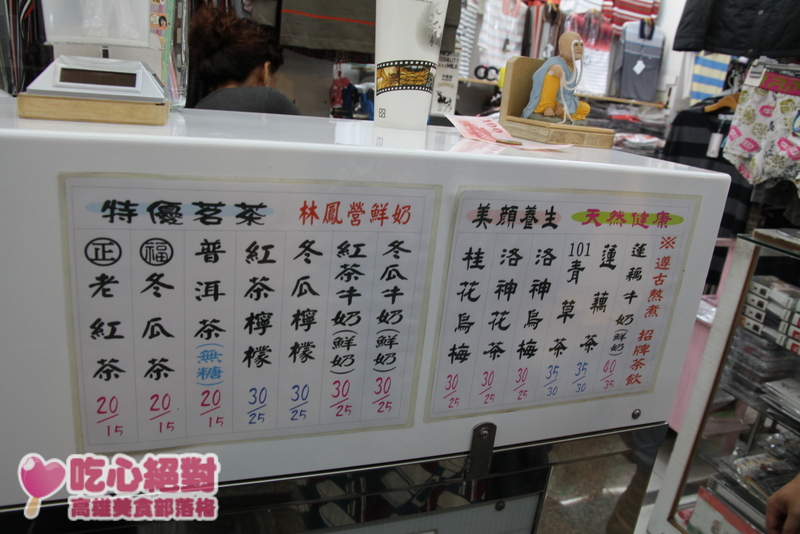 特優茗茶 林鳳營鮮奶
正老紅茶 20/15
福冬瓜茶 20/15
普洱茶(無糖) 20/15
紅茶檸檬 30/25
冬瓜檸檬 30/25
紅茶牛奶(鮮奶) 30/25
冬瓜牛奶(鮮奶) 30/25
美顏養生 天然健康
※遵古熬煮 招牌茶飲
蓮藕牛奶(鮮奶) 40/35
蓮藕茶 35/30
101青草茶 35/30
洛神烏梅 30/25
洛神花茶 30/25
桂花烏梅 30/25
吃心絕對
高雄美食部落格